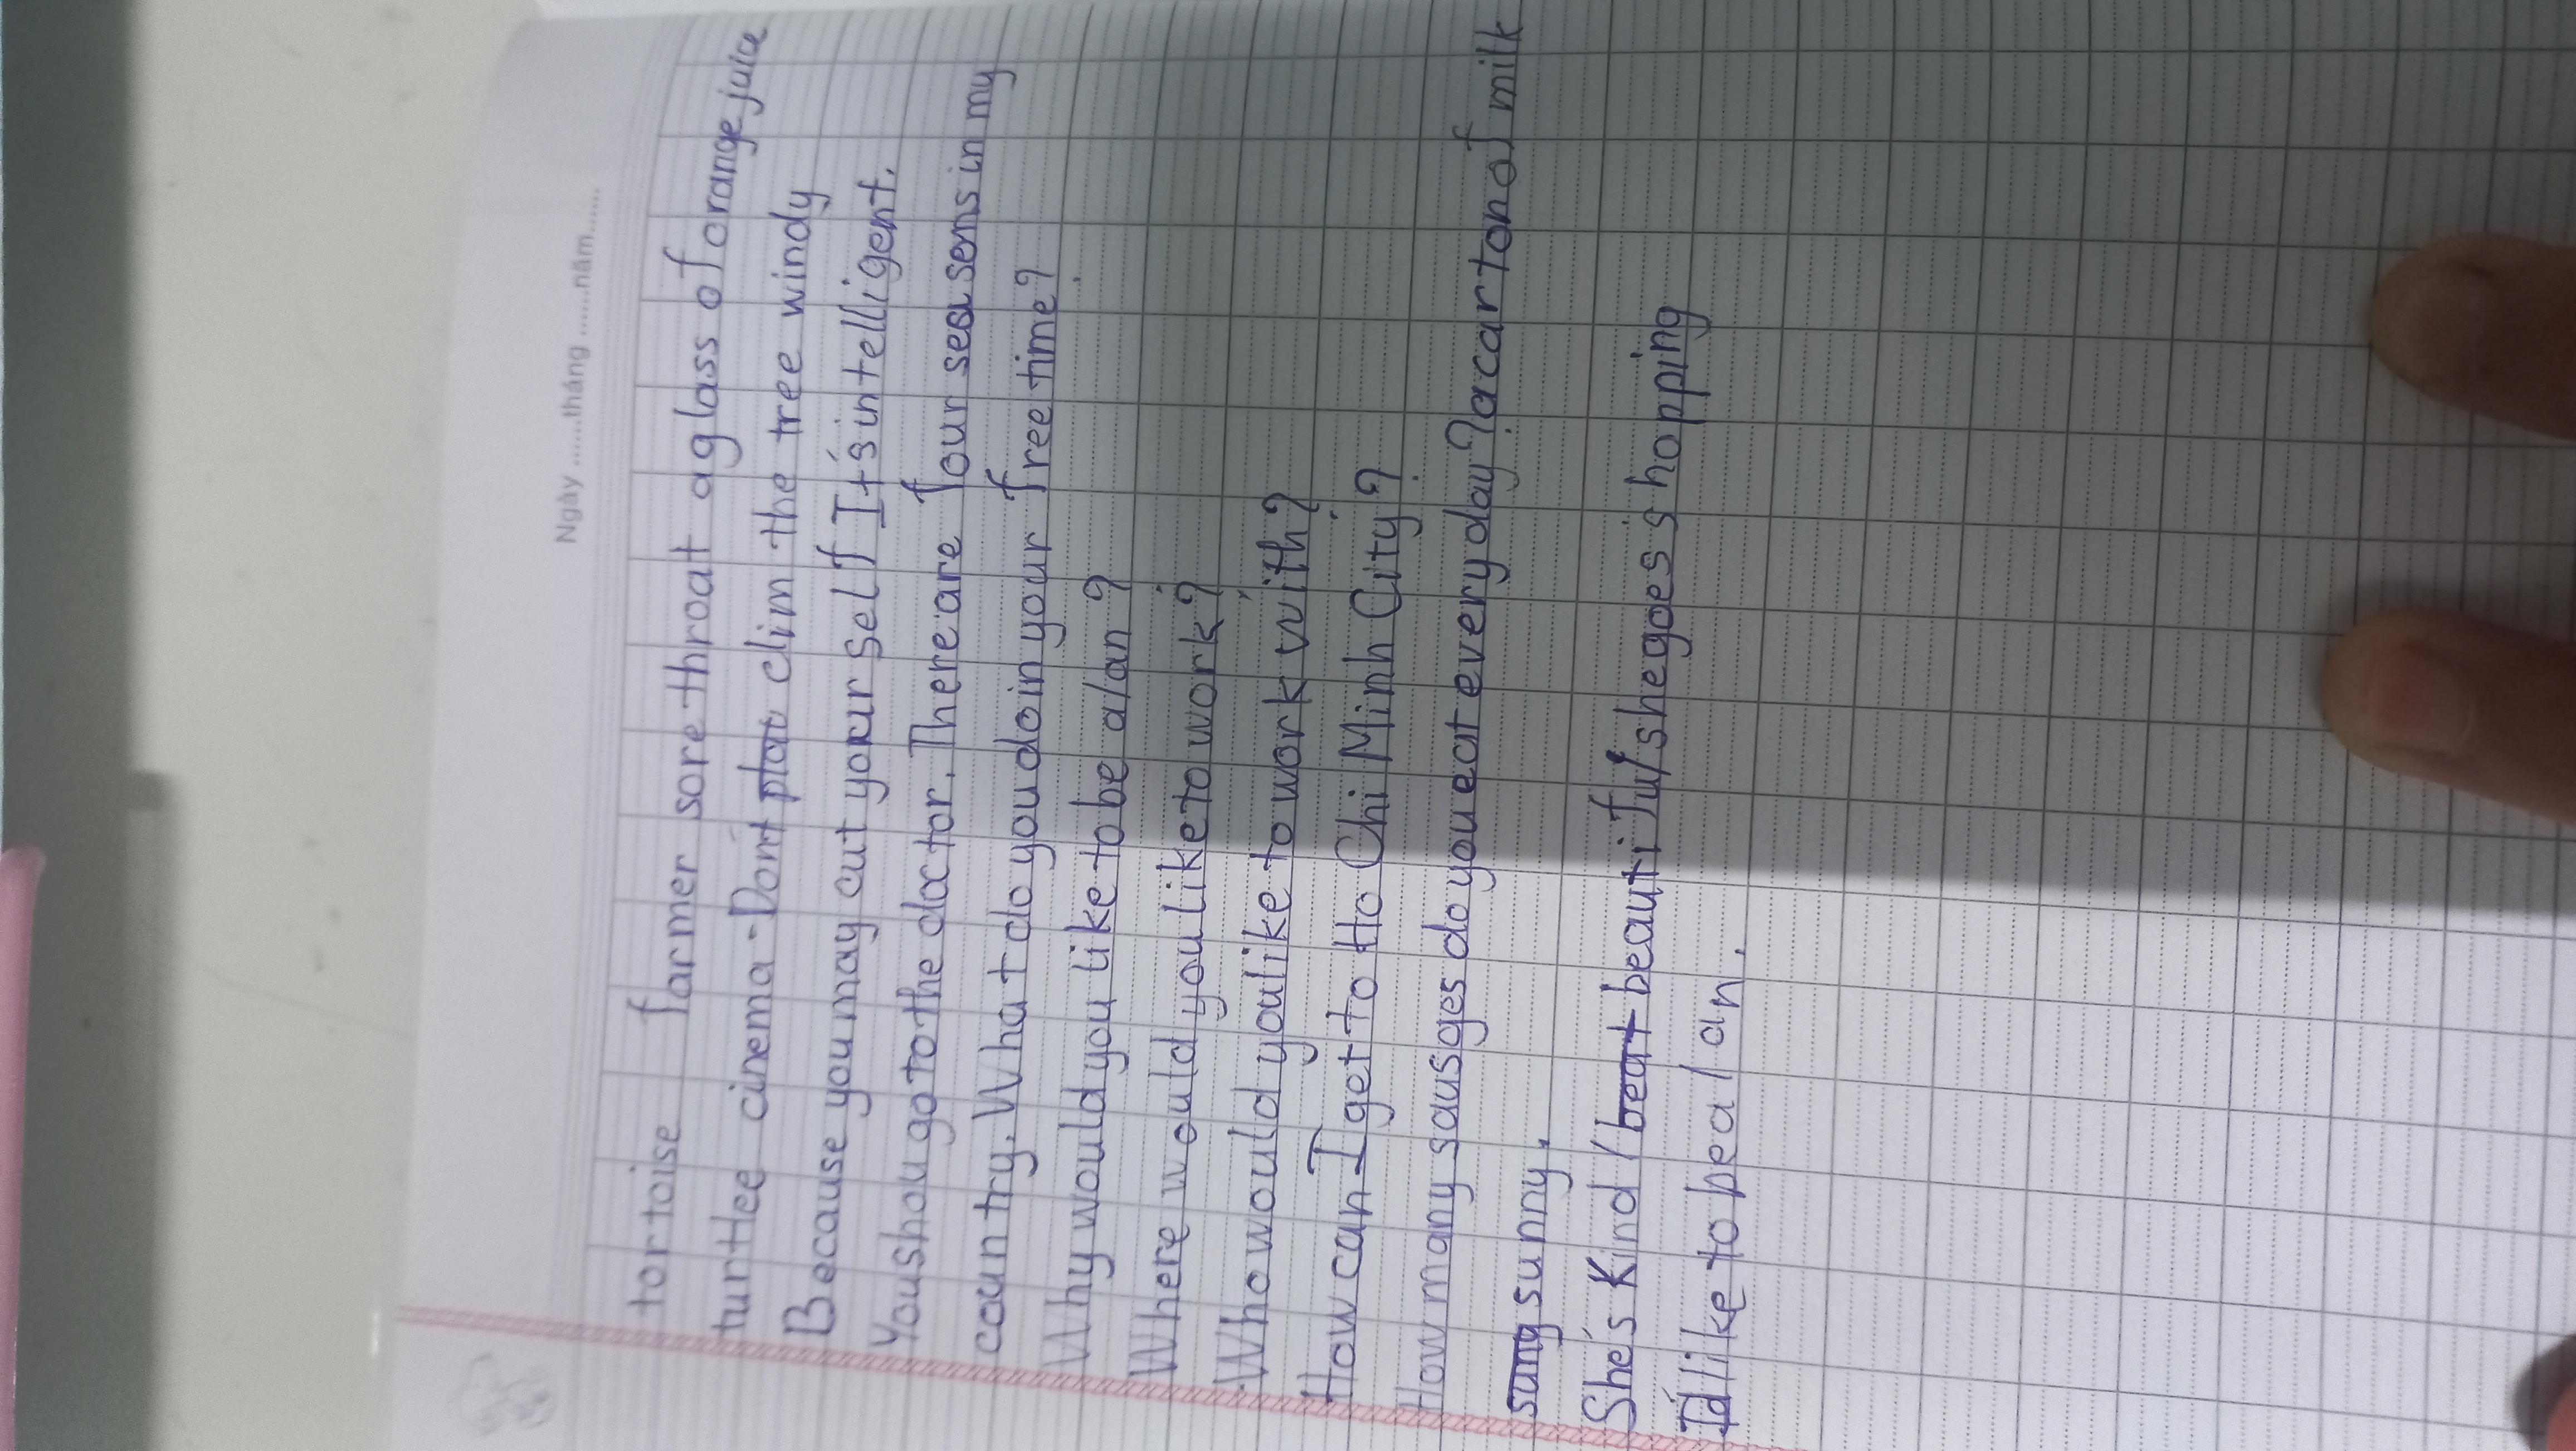 Ngày ......tháng ......năm......
tortoise farmer sore throat a glass of orange juice
turtlee cinema - Don't clim the tree windy
Because you may cut your self It's intelligent.
You shoul go to the doctor. There are four seasens in my
country. What do you do in your free time?
Why would you like to be a/an ?
Where would you like to work?
Who would you like to work with?
How can I get to Ho Chi Minh City?
How many sausages do you eat every day? a carton of milk
sunny.
She's Kind / beautiful / she goes shopping
I'd like to be a / an.